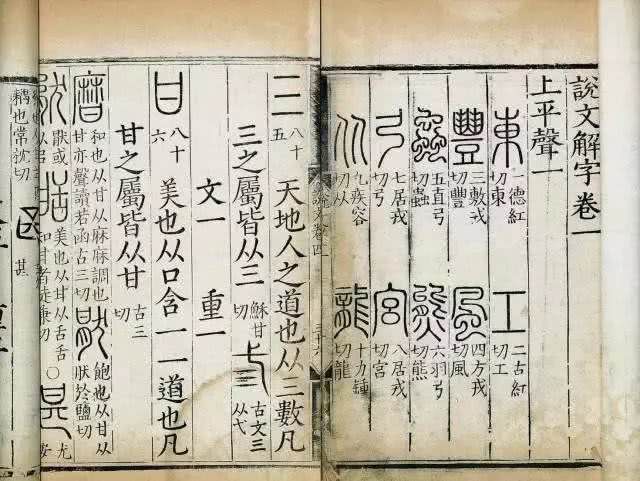 說文解字卷一
上平聲一
東 一德紅切東 工 二古紅切工
豐 三敷戎切豐 風 四方戎切風
蟲 五直弓切蟲 熊 六羽弓切熊
弓 七居戎切弓 宮 八居戎切宮
从 九疾容切从 龍 十力鍾切龍
說文卷四 三十六
三 八十五 天地人之道也从三數凡
三之屬皆从三 穌甘切 弎 古文三从弋
文一 重一
甘 八十六 美也从口含一一道也凡
甘之屬皆从甘 古三切
𪎭 和也从甘从麻麻調也甘亦聲讀若函古三切 猒 飽也从甘从肰於鹽切
猒或从 甛 美也从甘从舌舌知甘者徒兼切 ○ 甚 尤安
耦也常枕切 甚